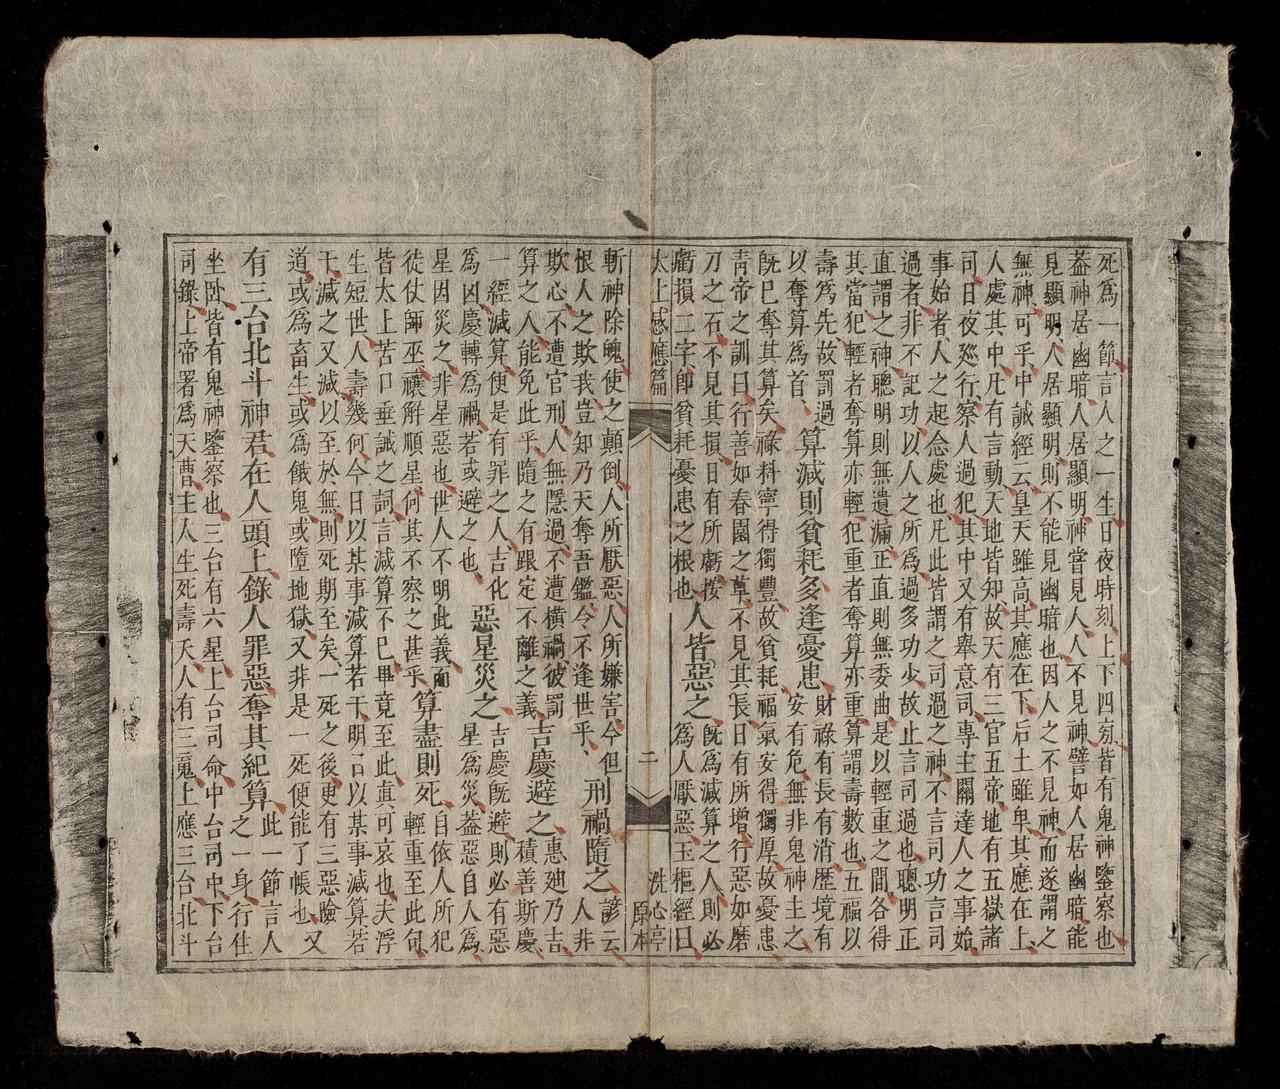 死爲一節言人之一生日夜時刻上下四旁皆有鬼神鑒察也
葢神居幽暗人居顯明神當見人人不見神譬如人居幽暗能
見顯明人居顯明則不能見幽暗也因人之不見神而遂謂之
無神可乎中誡經云皇天雖高其應在下后土雖卑其應在上
人處其中凡有言動天地皆知故天有三官五帝地有五嶽諸
司日夜廵行察人過犯其中又有舉意司專主關達人之事始
事始者人之起念處也凡此皆謂之司過之神不言司功言司
過者非不記功以人之所爲過多功少故止言司過也聰明正
直謂之神聰明則無遺漏正直則無委曲是以輕重之間各得
其當犯輕者奪算亦輕犯重者奪算亦重算謂壽數也五福以
壽爲先故罰過
以奪算爲首
算減則貧耗多逢憂患
財祿有長有消歷境有
安有危無非鬼神主之
旣已奪其算矣祿料寧得獨豐故貧耗福氣安得獨厚故憂患
靑帝之訓曰行善如春園之草不見其長日有所增行惡如磨
刀之石不見其損日有所虧按
虧損二字卽貧耗憂患之根也
人皆惡之
旣爲減算之人則必
爲人厭惡玉樞經曰
太上感應篇
二
洗心亭
原本
斬神除魄使之顛倒人所厭惡人所嫌害今但
恨人之欺我豈知乃天奪吾鑑令不逢世乎
刑禍隨之
諺云
人非
欺心不遭官刑人無隱過不遭橫禍彼罰
算之人能免此乎隨之有跟定不離之義
吉慶避之
惠廸乃吉
積善斯慶
一經減算便是有罪之人吉化
爲凶慶轉爲禍若或避之也
惡星災之
吉慶旣避則必有惡
星爲災葢惡自人爲
星因災之非星惡也世人不明此義而
徒仗師巫禳解順星何其不察之甚乎
算盡則死
自依人所犯
輕重至此句
皆太上苦口垂誡之詞言減算不已畢竟至此真可哀也夫浮
生短世人壽幾何今日以某事減算若干明日以某事減算若
干減之又減以至於無則死期至矣一死之後更有三惡險
道或爲畜生或爲餓鬼或墮地獄又非是一死便能了帳也
又
有三台北斗神君在人頭上錄人罪惡奪其紀算
此一節言人
之一身行住
坐臥皆有鬼神鑒察也三台有六星上台司命中台司中下台
司錄上帝署爲天曹主人生死壽夭人有三䰟上應三台北斗